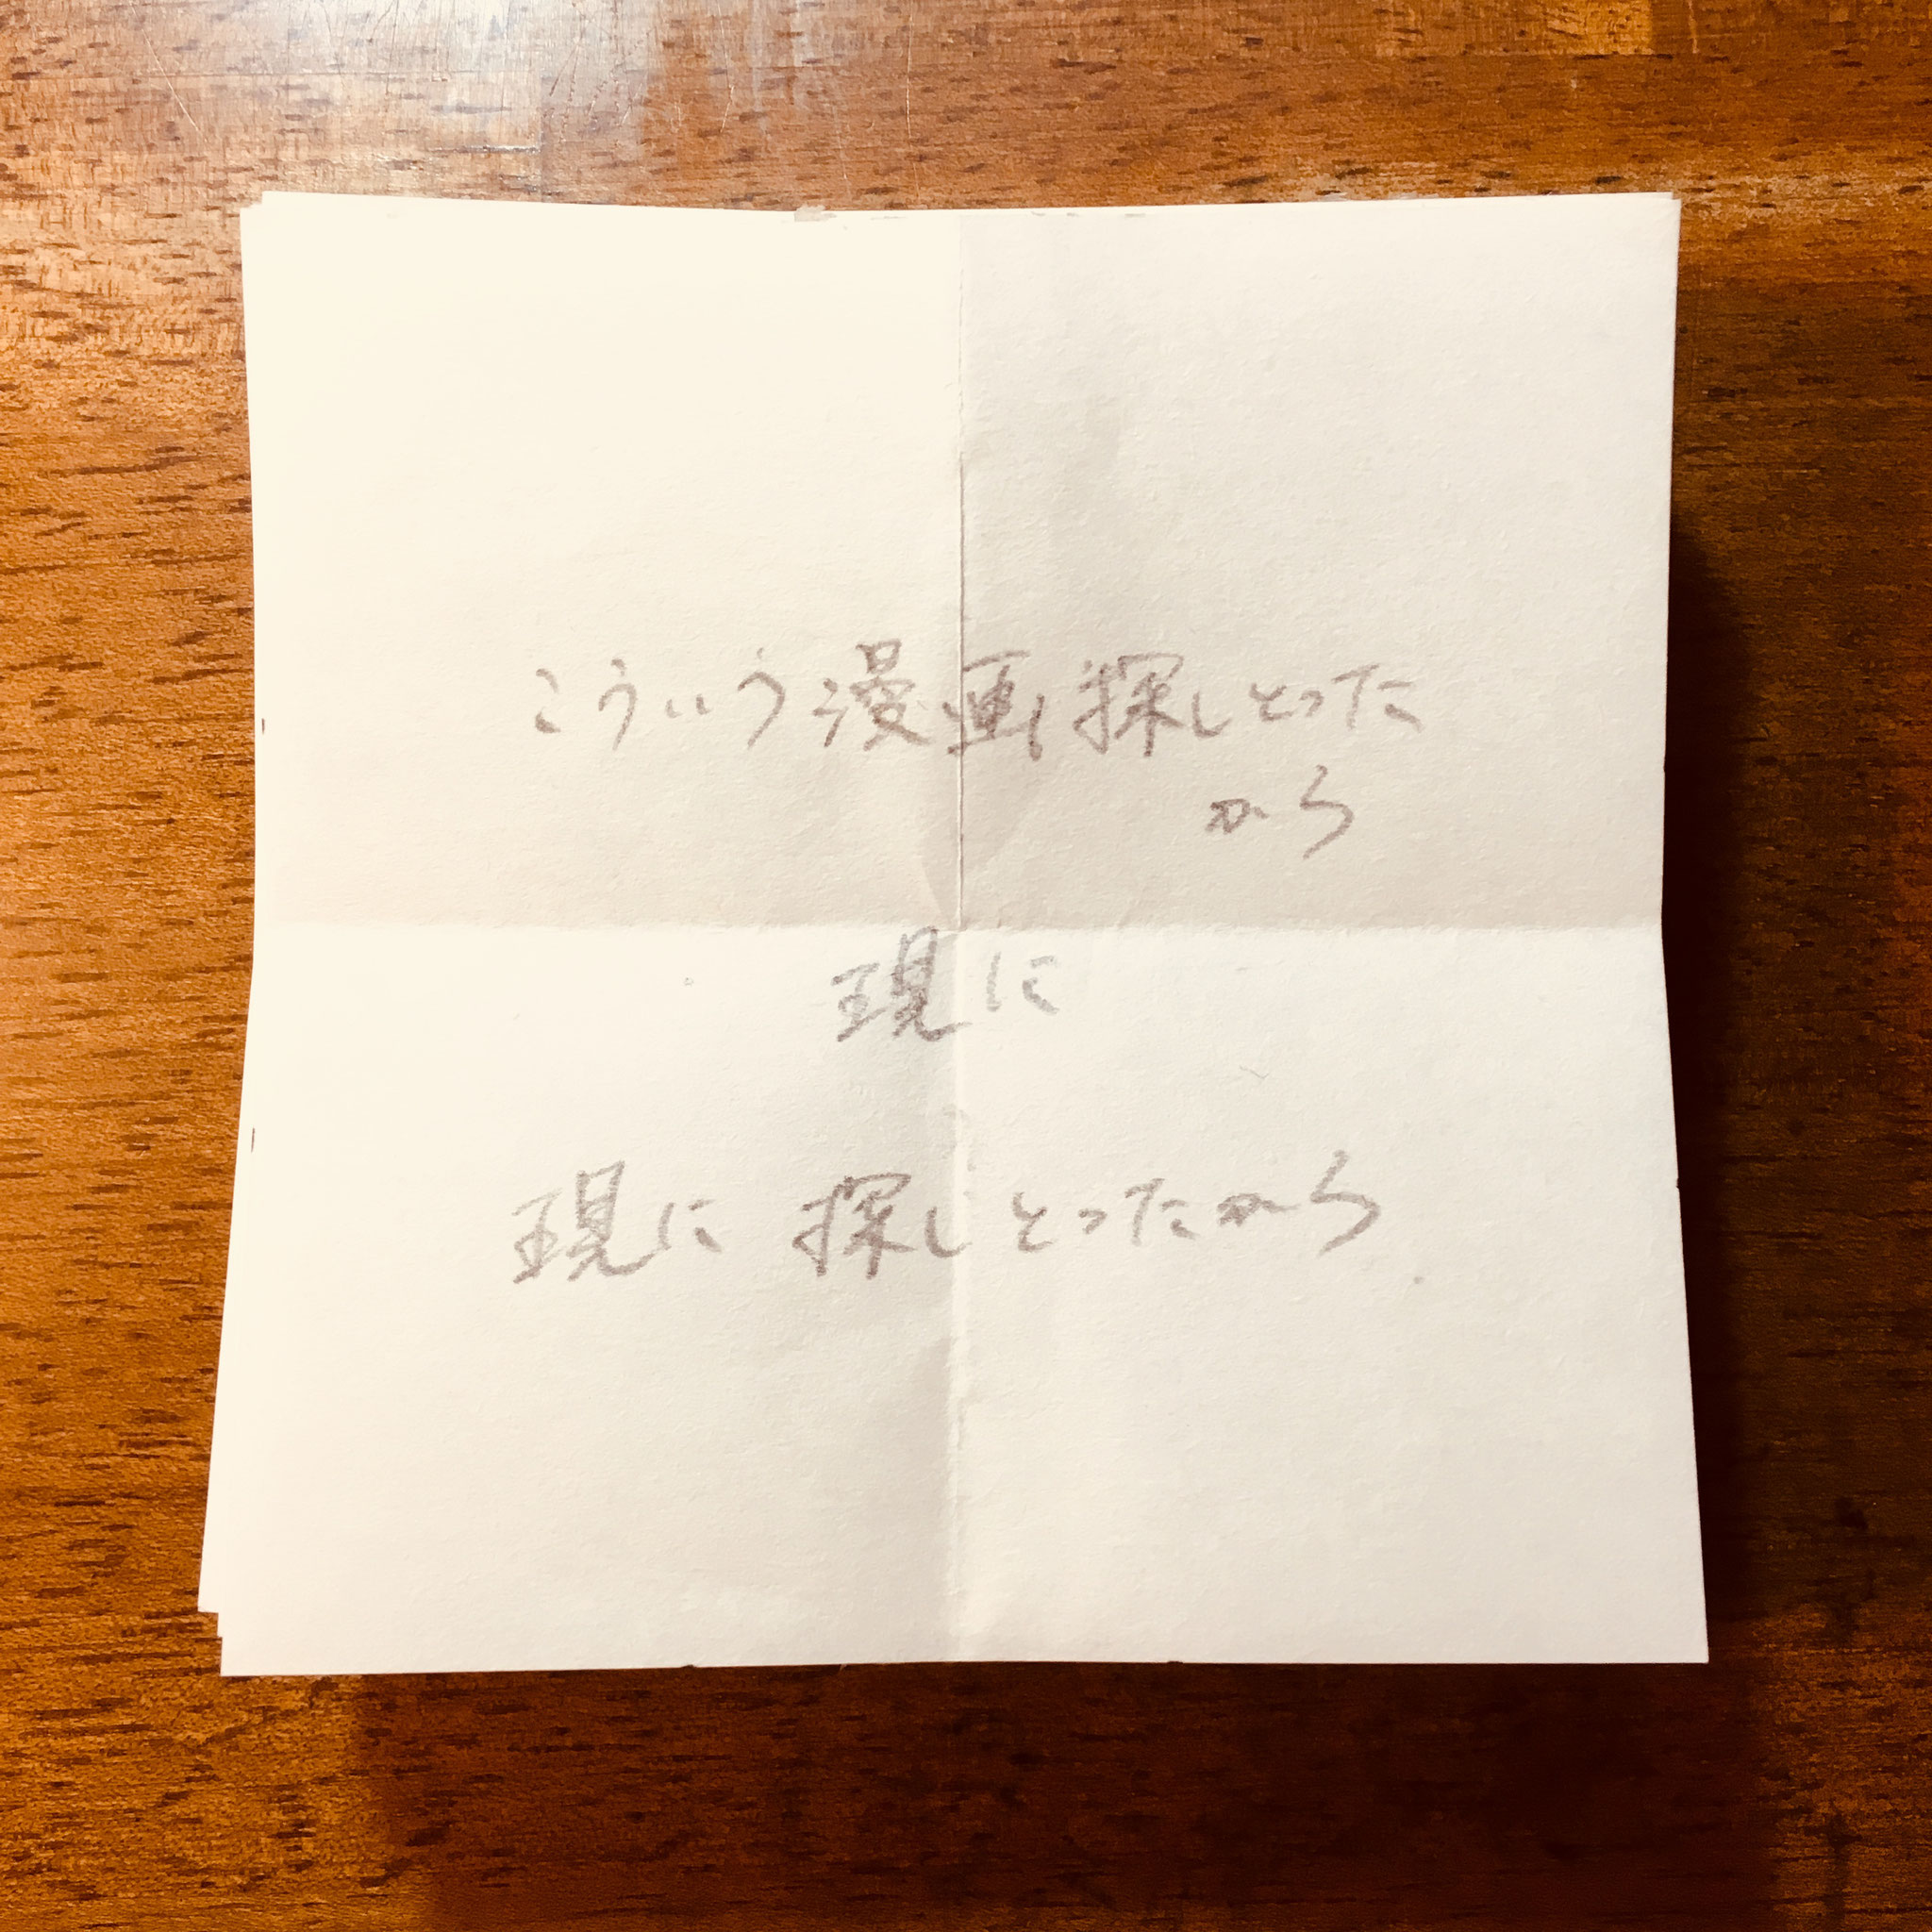 こういう漫画探しとった
から
現に
現に 探しとったから